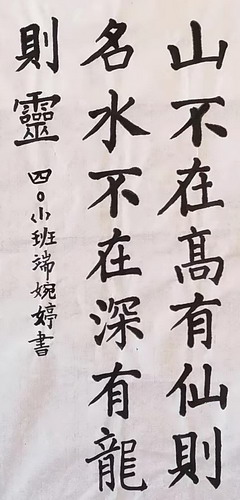 山不在高有仙則
名水不在深有龍
則靈
四〇小班端婉婷書